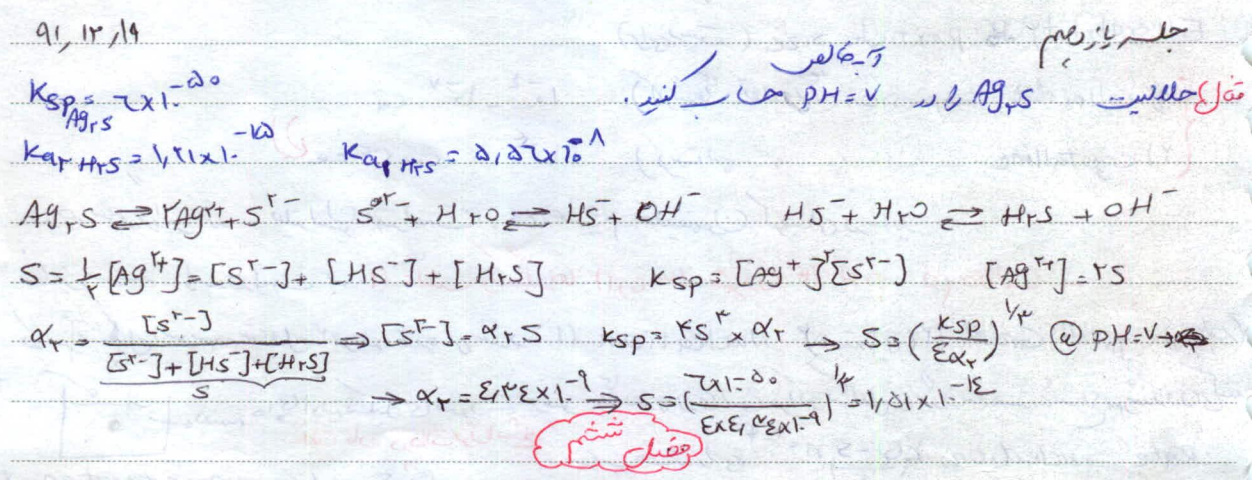 ۹۱,۱۲,۱۹ جلسه یازدهم
مثال) حلالیت Ag₂S را در آب خالص PH=۷ حساب کنید.
Ksp Ag₂S = ۶×۱۰⁻⁵۰
Ka₂ H₂S = ۱,۲۱×۱۰⁻¹⁵ Ka₁ H₂S = ۵,۵۶×۱۰⁻⁸
Ag₂S ⇌ ۲Ag²⁺ + S²⁻ S²⁻ + H₂O ⇌ HS⁻ + OH⁻ HS⁻ + H₂O ⇌ H₂S + OH⁻
S = ۱/۲ [Ag²⁺] = [S²⁻] + [HS⁻] + [H₂S] Ksp = [Ag⁺]²[S²⁻] [Ag²⁺] = ۲S
α₂ = [S²⁻] / ([S²⁻] + [HS⁻] + [H₂S]) ⇒ [S²⁻] = α₂ S Ksp = ۴S³ × α₂ → S = (Ksp / ۴α₂)^۱/۳ @ PH=۷ →
S → α₂ = ۴,۳۴×۱۰⁻⁹ ⇒ S = (۶×۱۰⁻⁵۰ / ۴×۴,۳۴×۱۰⁻⁹)^۱/۳ = ۱,۵۱×۱۰⁻¹⁴
فصل ششم